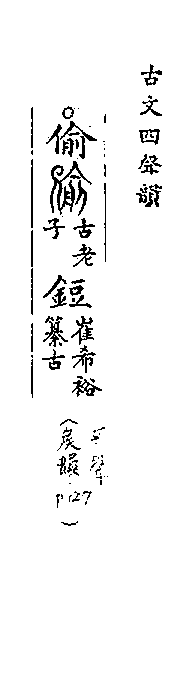 古文四聲韻
偸 古老子 鋀 崔希裕纂古
(侯韻 平聲 p127)